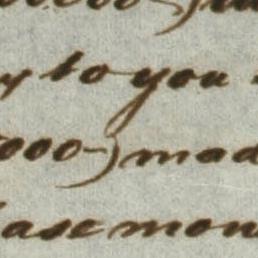 to you
000-) mad
ase mon